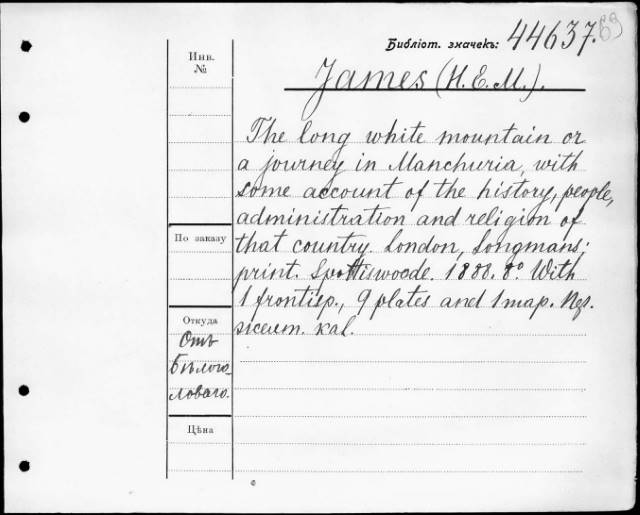 Библіот. значекъ: 44637.
69
Инв.
№
James (H. E. M.).
The long white mountain or
a journey in Manchuria, with
some account of the history, people,
administration and religion of
По заказу
that country. London, Longmans;
print. Spottiswoode. 1888. 8° With
1 frontisp., 9 plates and 1 map.
Откуда
Отъ
Бѣлого-
ловаго.
Цѣна